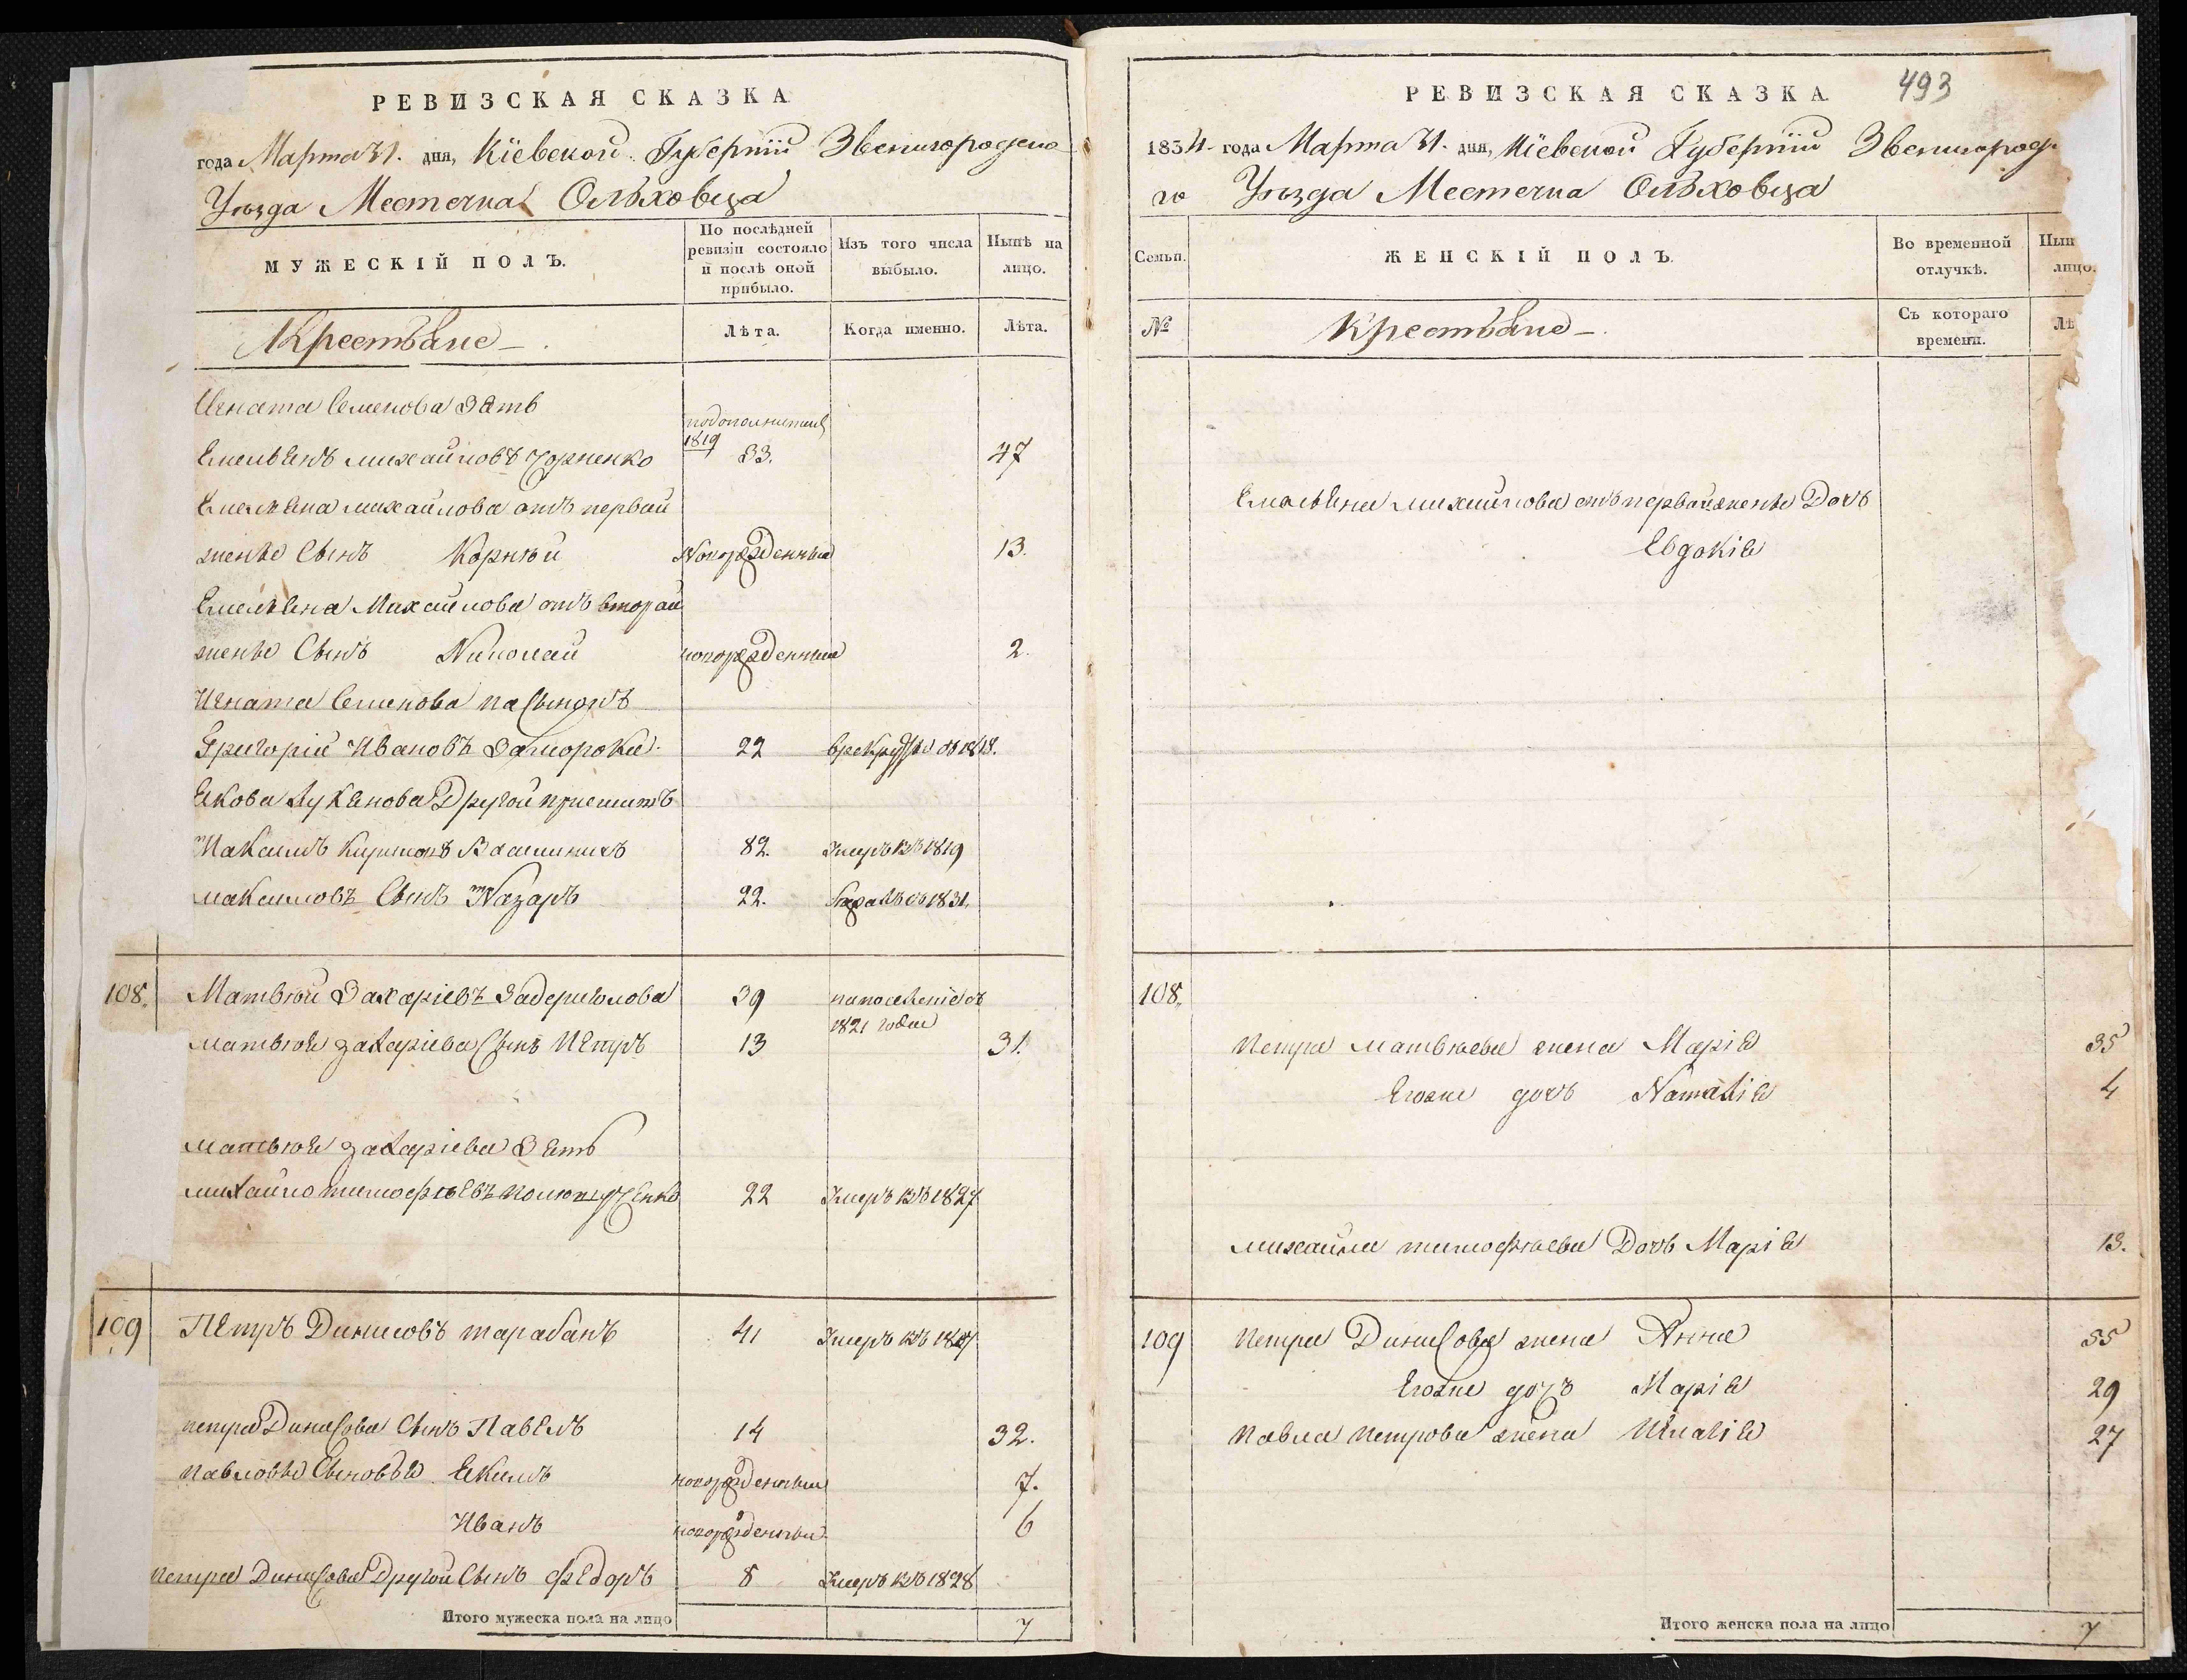 РЕВИЗСКАЯ СКАЗКА
года Марта 21. дня, Кіевской Губерніи Звенигородска
Уѣзда Местечка Ольховца
МУЖЕСКІЙ ПОЛЪ.
По послѣдней ревизіи состояло и послѣ оной прибыло.
Изъ того числа выбыло.
Нынѣ на лицо.
Крестьяне
Лѣта.
Когда именно.
Лѣта.
Игната Семенова Зять
подополнител
1819
Емельянъ михайловъ Чорненко 33. 47
Емельяна михайлова отъ первой
жены Сынъ Корнѣй Новорожденный 13.
Емельяна Михайлова отъ второй
жены Сынъ Николай новорожденный 2.
Игната Семенова пасынокъ
Григорій Ивановъ 22 1818.
Якова Лукянова Другой приемишъ
Макъсимъ 82. Умеръ въ 1819
макъсимовъ Сынъ Назаръ 22. 1831.
108. Матвѣй Захаріевъ Задериголова 39 на поселеніе въ
1821 годе
матвѣя захаріева Сынъ Петръ 13 31.
матвѣя захаріева Зять
михайло тимофѣевъ 22 Умеръ въ 1827
109 Петръ Динисовъ тарабанъ 41 Умеръ въ
петра Динисова Сынъ Павелъ 14 32.
павловы Сыновья Якимъ новорожденный 7.
Иванъ новорожденный 6
петра Динисова Другой Сынъ Федоръ 8 Умеръ въ 1828
Итого мужеска пола на лицо 7
493
РЕВИЗСКАЯ СКАЗКА
1834 года Марта 21. дня, Кіевской Губерніи Звенигородс
го Уѣзда Местечка Ольховца
Семьи.
ЖЕНСКІЙ ПОЛЪ.
Во временной отлучкѣ.
Нын
лицо.
№
Крестьяне
Съ котораго времени.
Лѣ
Емельяна михайлова отъ первой жены Дочь
Евдокія
108.
Петра матвѣева жена Марія 35
Егоже дочь Наталія 4
михайла тимофѣева Дочь Марія 13.
109 петра Динисова жена Анна 55
Егоже дочь Марія 29
Павла петрова жена 27
Итого женска пола на лицо 7